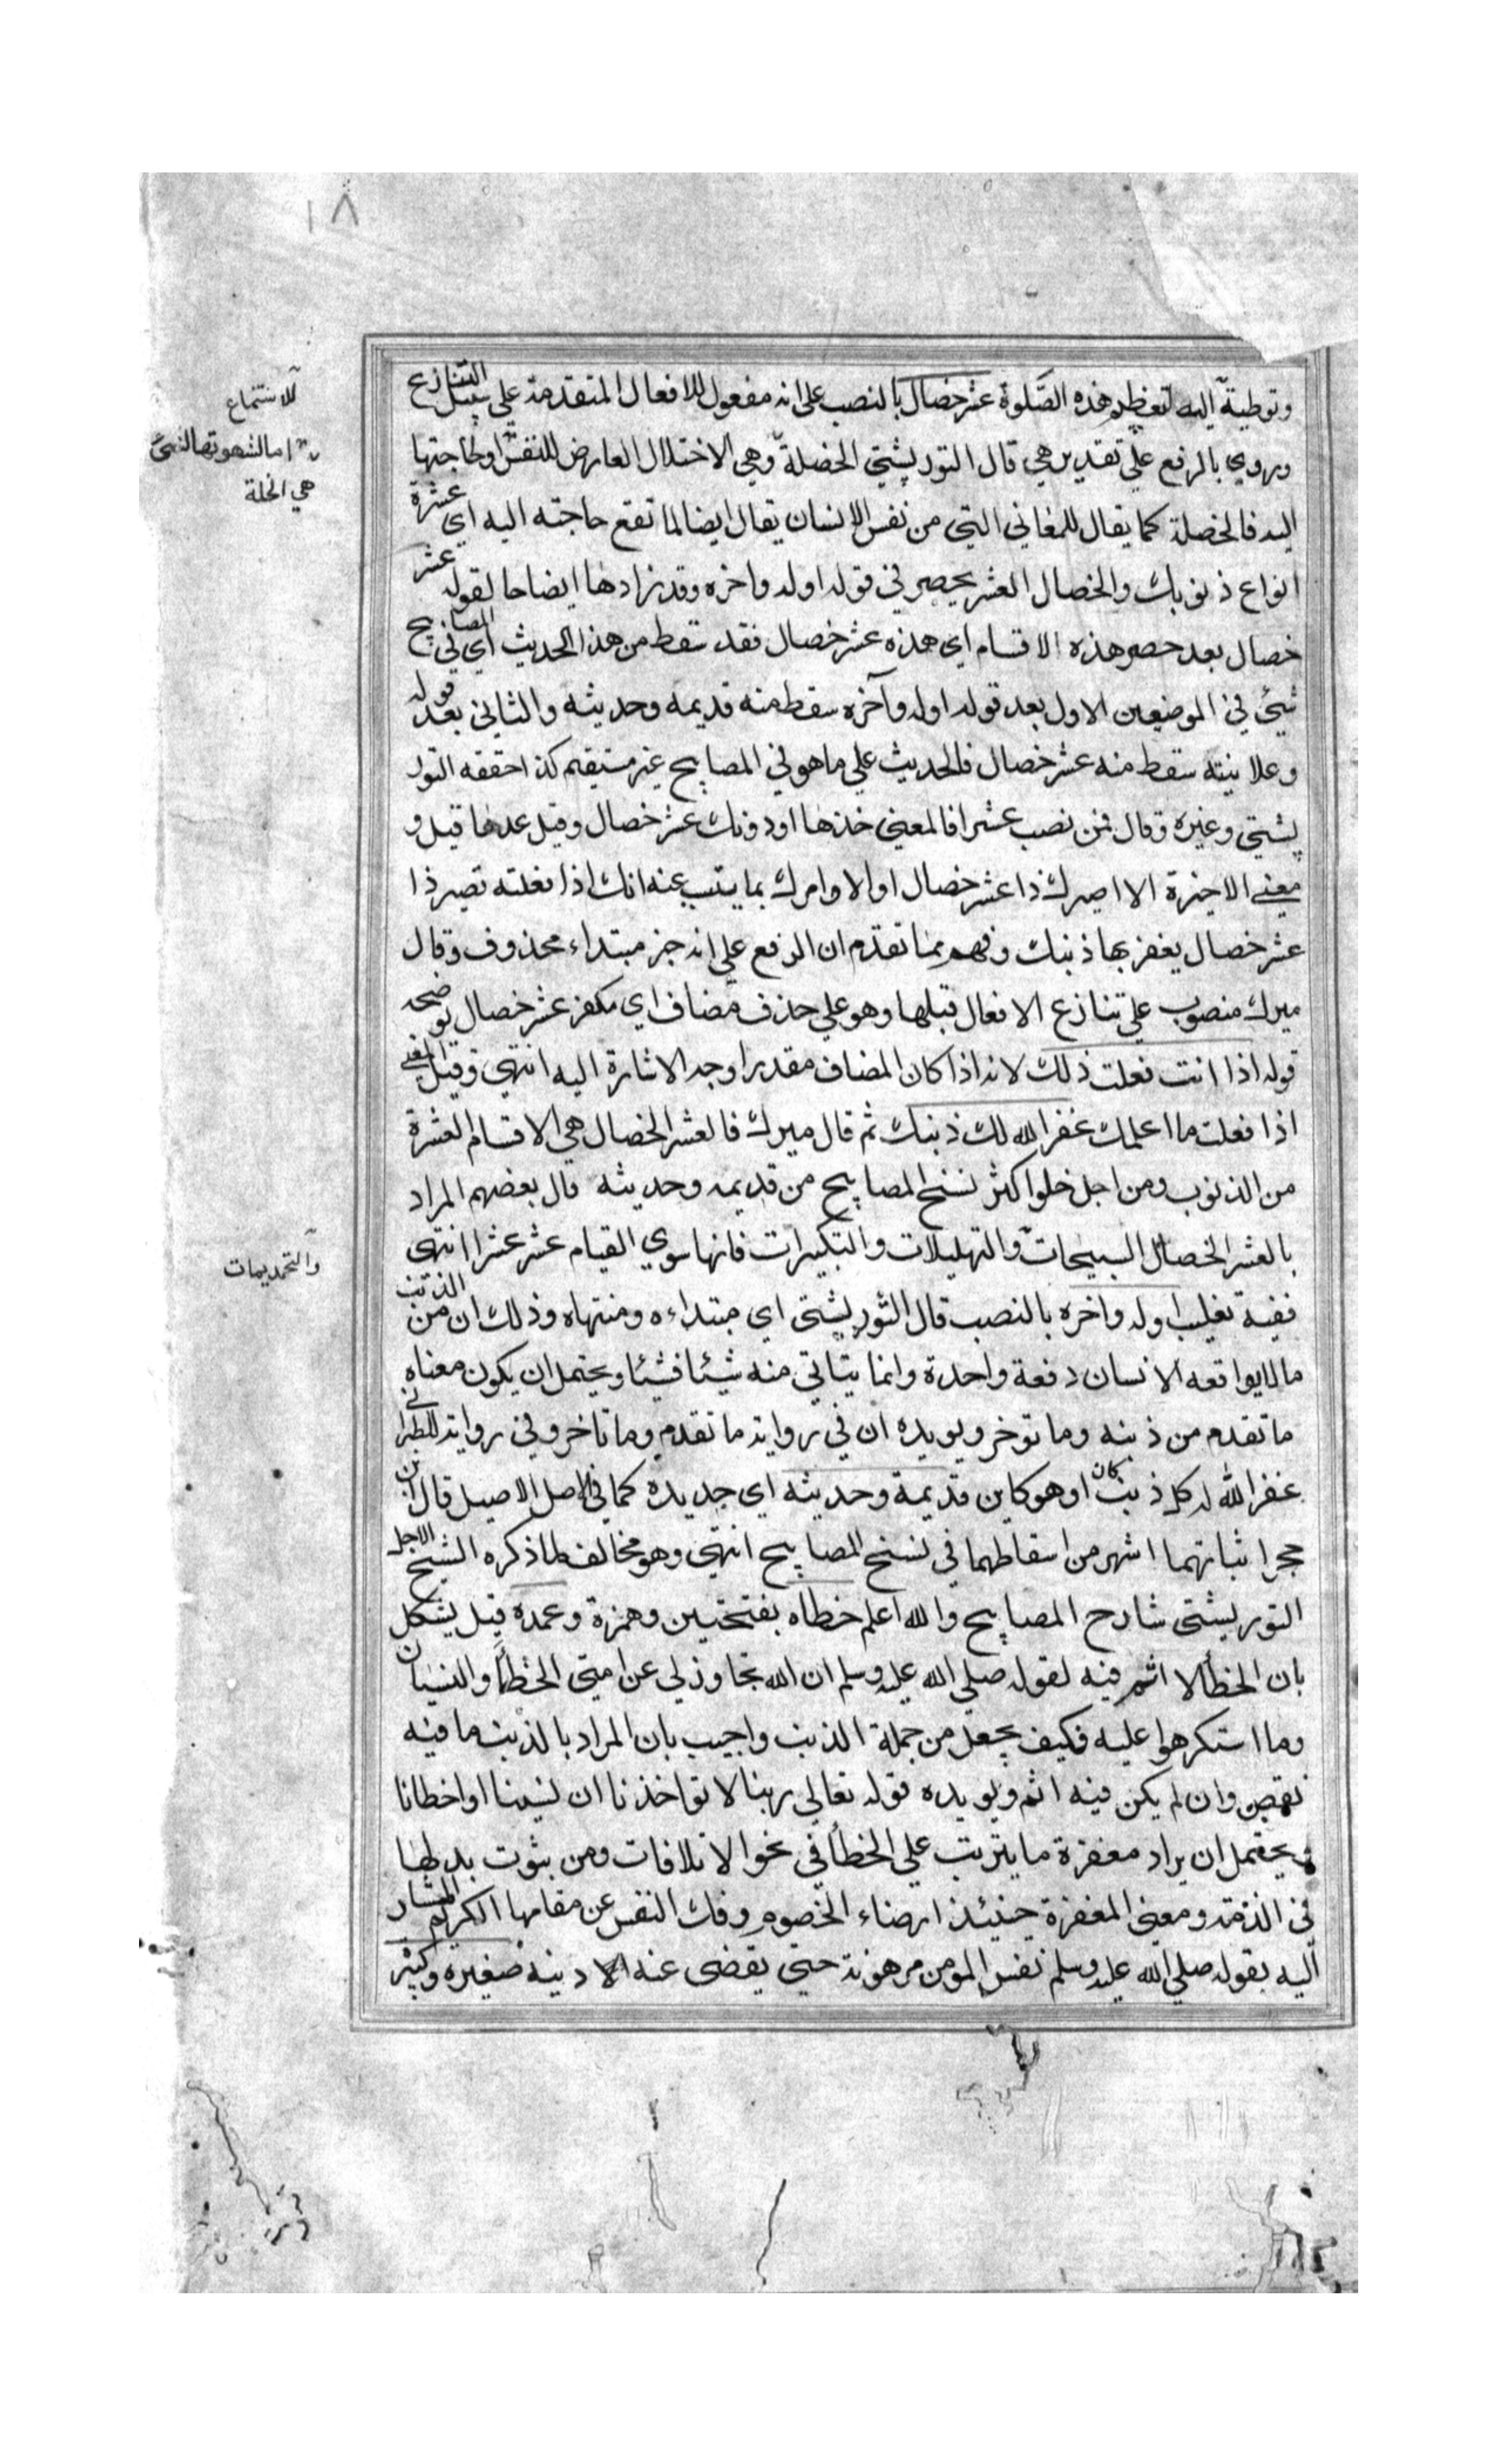 ١٨
وتوطية اليه لتعظيم هذه الصلوة عشر خصال بالنصب على انه مفعول للافعال المتقدمة علي سبيل التنازع
للاستماع
وروي بالرفع علي تقدير هي قال التوربشتي الخصلة وهي الاختلال العارض للنفس او لحاجتها
هي الخلة
اليه فالخصلة كما يقال للمعاني التي من نفس الانسان يقال ايضا لما تقع حاجته اليه اي عشرة
انواع ذنوبك والخصال العشر يحصر في قوله اوله واخره وقد زادها ايضاحا لقوله عشر
خصال بعد حصر هذه الاقسام اي هذه عشر خصال فقد سقط من هذا الحديث اي في المصابيح
شيئ في الموضعين الاول بعد قوله اوله وآخره سقط منه قديمه وحديثه والثاني بعد قوله
وعلانيته سقط منه عشر خصال فالحديث علي ما هو في المصابيح غير مستقيم كذا حققه التور
بشتي وغيره وقال فمن نصب عشرا فالمعني خذها او دونك عشر خصال وقيل عدها قيل و
معني الاخيرة الا اصيرك ذا عشر خصال او الا وامرك بما يتسبب عنه انك اذا فعلته تصير ذا
عشر خصال يغفر بها ذنبك وفهم مما تقدم ان الرفع علي انه خبر مبتداء محذوف وقال
ميرك منصوب علي تنازع الافعال قبلها وهو علي حذف مضاف اي مكفر عشر خصال يوضحه
قوله اذا انت فعلت ذلك لانه اذا كان المضاف مقدرا وجه الاشارة اليه انتهي وقيل المعني
اذا فعلت ما اعلمك غفر الله لك ذنبك ثم قال ميرك فالعشر الخصال هي الاقسام العشرة
من الذنوب ومن اجل خلو اكثر نسخ المصابيح من قديمه وحديثه قال بعضهم المراد
بالعشر الخصال التسبيحات والتهليلات والتكبيرات فانها سوي القيام عشر عشر انتهى
والتحميدات
ففيه تغليب اوله واخره بالنصب قال التوربشتي اي مبتداءه ومنتهاه وذلك ان من الذنب
ما لا يواقعه الانسان دفعة واحدة وانما يتاتي منه شيئا فشيئا ويحتمل ان يكون معناه
ما تقدم من ذنبه وما توخر ويويده ان في رواية ما تقدم وما تاخر وفي رواية للطبراني
غفر الله له كل ذنب كان او هو كاين قديمة وحديثه اي جديده كما في الاصل الاصيل قال ابن
حجر اثباتهما اشهر من اسقاطهما في نسخ المصابيح انتهي وهو مخالف لما ذكره الشيخ الاجل
التوربشتي شارح المصابيح والله اعلم خطاه بفتحتين وهمزة وعمده قيل يشكل
بان الخطألا اثم فيه لقوله صلي الله عليه وسلم ان الله تجاوز لي عن امتي الخطأ والنسيان
وما استكرهوا عليه فكيف يجعل من جملة الذنب واجيب بان المراد بالذنب ما فيه
نقص وان لم يكن فيه اثم ويويده قوله تعالي ربنا لا تواخذنا ان نسينا او اخطانا
ويحتمل ان يراد مغفرة ما يترتب علي الخطأ في نحو الاتلافات ومن ثبوت بدلها
في الذمة ومعني المغفرة حينئذ ارضاء الخصوم وفك النفس عن مقامها الكريم المشار
اليه بقوله صلي الله عليه وسلم نفس المومن مرهونة حتي يقضى عنه دينه صغيره وكبير